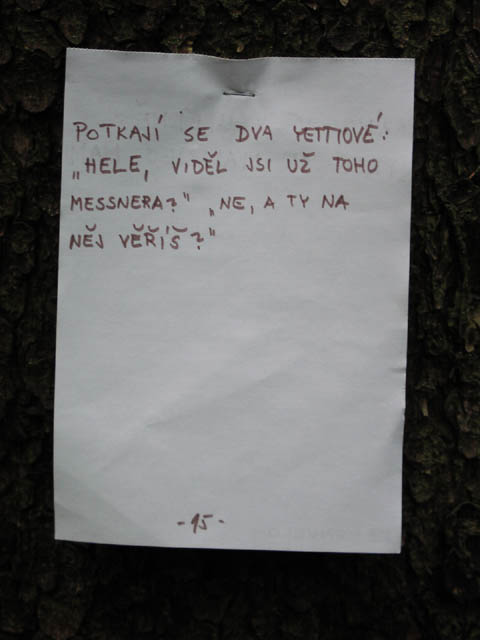 POTKAJÍ SE DVA YETTIOVÉ:
„HELE, VIDĚL JSI UŽ TOHO
MESSNERA?" „NE, A TY NA
NĚJ VĚŘÍŠ?"
-15-